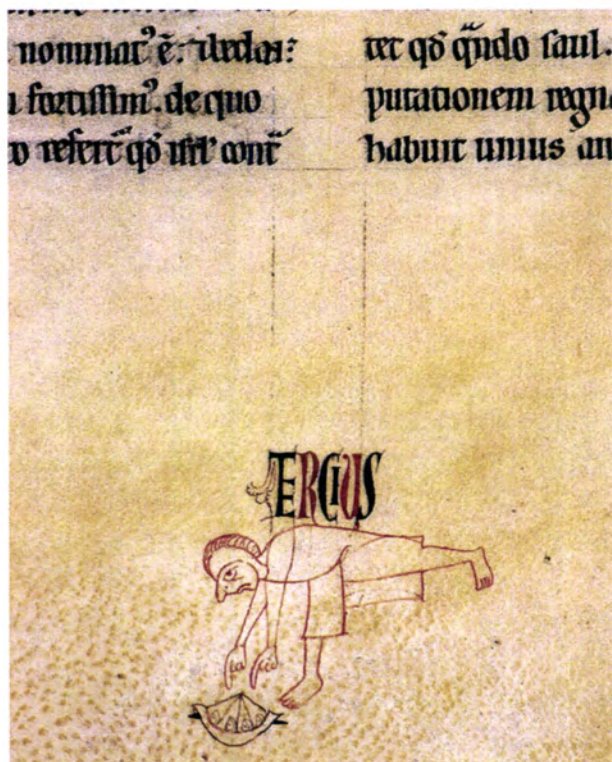 nominat᾽ ē.
fortissim᾽. de quo
refert᷑ qđ isrl᾽ cont᷑
tet qđ qn̄do saul.
putationem regn
habuit unius an
TERCIUS